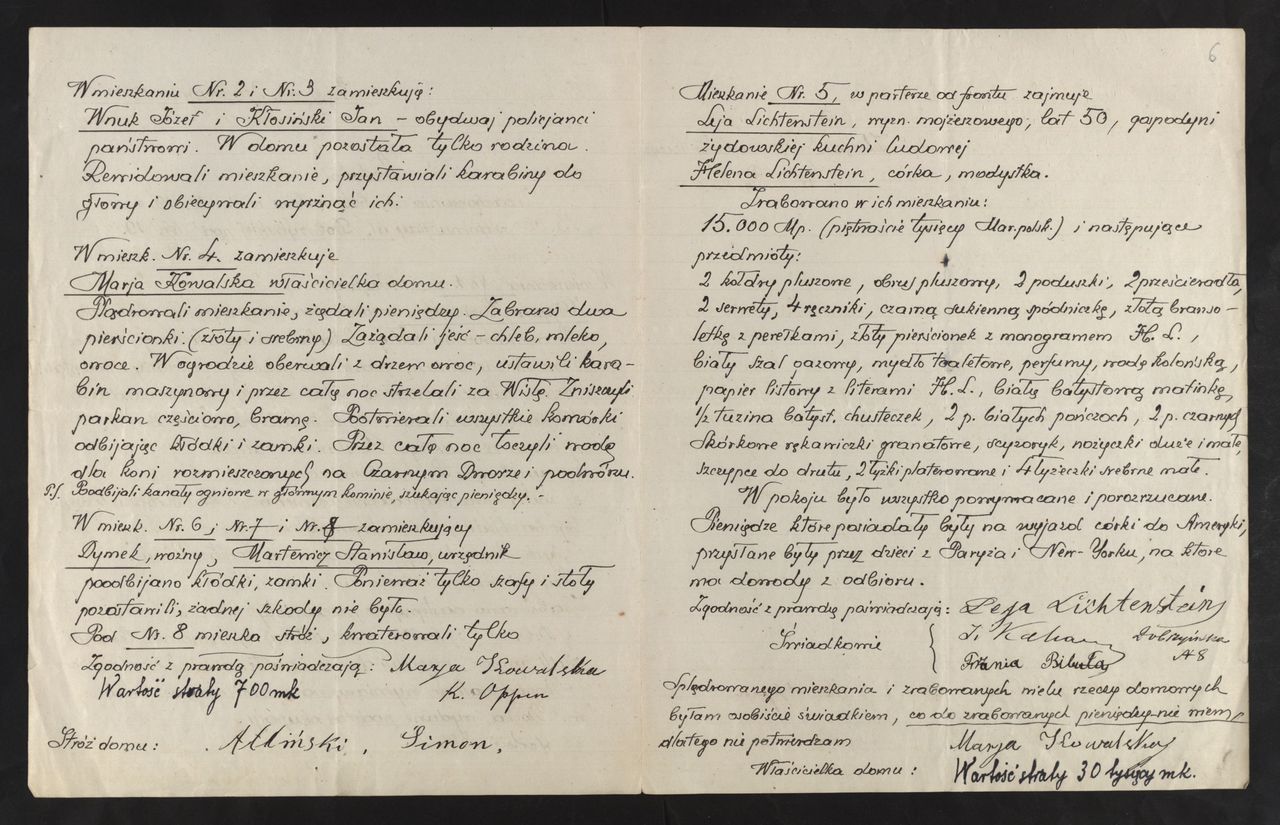 W mieszkaniu Nr. 2 i Nr. 3 zamieszkują:
Wnuk Józef i Kłosiński Jan – obydwaj policjanci
państwowi. W domu pozostała tylko rodzina.
Rewidowali mieszkanie, przystawiali karabiny do
głowy i obiecywali wyrżnąć ich.
W mieszk. Nr. 4. zamieszkuje
Marja Kowalska właścicielka domu.
Plądrowali mieszkanie, żądali pieniędzy. Zabrano dwa
pierścionki. (złoty i srebrny) Zażądali jeść – chleb, mleko,
owoce. W ogrodzie oberwali z drzew owoc, ustawili kara-
bin maszynowy i przez całą noc strzelali za Wisłę. Zniszczyli
parkan częściowo, bramę. Pootwierali wszystkie komórki
odbijając kłódki i zamki. Przez całą noc toczyli wodę
dla koni rozmieszczonych na Czarnym Dworze i podwórzu.
P.S. Podbijali kanały ogniowe w głównym kominie, szukając pieniędzy. –
W mieszk. Nr. 6, i Nr. 7 i Nr. 8 zamieszkujący
Dymek, woźny, Martewicz Stanisław, urzędnik
poodbijano kłódki, zamki. Ponieważ tylko szafy i stoły
pozostawili, żadnej szkody nie było.
Pod Nr. 8 mieszka stróż, kwaterowali tylko
Zgodność z prawdą poświadczają: Marja Kowalska
Wartość straty 700 mk K. Oppen
Stróż domu: Simon,
6
Mieszkanie Nr. 5, w parterze od frontu zajmuje
Leja Lichtenstein, wyzn. mojżeszowego, lat 50, gospodyni
żydowskiej kuchni ludowej
Helena Lichtenstein, córka, modystka.
Zrabowano w ich mieszkaniu:
15.000 Mp. (piętnaście tysięcy Mar. polsk.) i następujące
przedmioty:
2 kołdry pluszowe, obrus pluszowy, 2 poduszki, 2 prześcieradła,
2 serwety, 4 ręczniki, czarną sukienną spódniczkę, złotą branso-
letkę z perełkami, złoty pierścionek z monogramem H. L.,
biały szal gazowy, mydło toaletowe, perfumy, wodę kolońską,
papier listowy z literami H. L., białą batystową matinkę,
1/2 tuzina batyst. chusteczek, 2 p. białych pończoch, 2 p. czarnych
skórkowe rękawiczki granatowe, scyzoryk, nożyczki duże i małe,
szczypce do drutu, 2 łyżki platerowane i 4 łyżeczki srebrne małe.
W pokoju było wszystko powywracane i porozrzucane.
Pieniądze które posiadały były na wyjazd córki do Ameryki,
przysłane były przez dzieci z Paryża i New-Yorku, na które
ma dowody z odbioru.
Zgodność z prawdą poświadczają: Leja Lichtenstein
Świadkowie Dobrzyńska
Frania
Splądrowanego mieszkania i zrabowanych wielu rzeczy domowych
byłam osobiście świadkiem, co do zrabowanych pieniędzy – nie wiem,
dlatego nie potwierdzam Marja Kowalska
Właścicielka domu: Wartość straty 30 tysięcy mk.